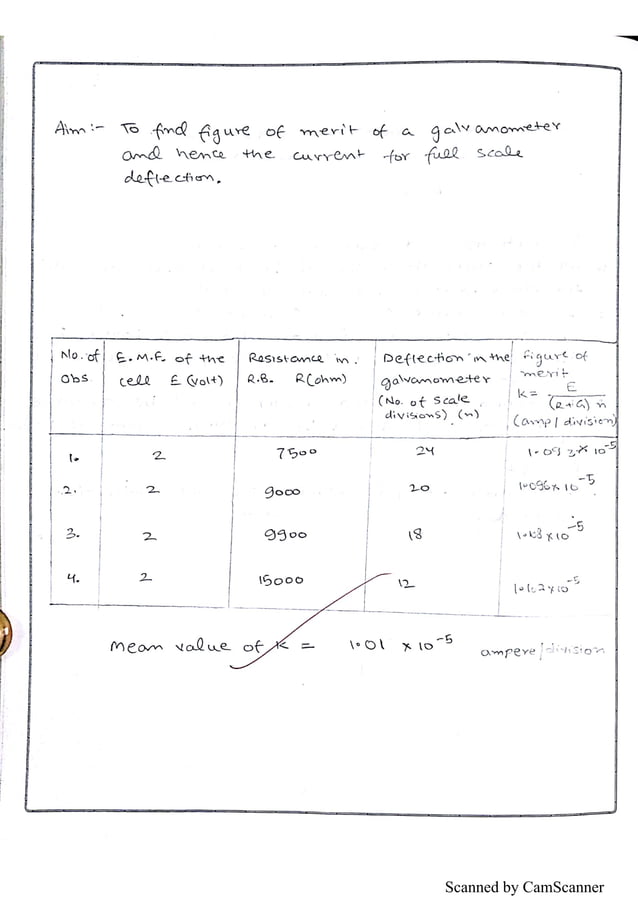 Aim:- To find figure of merit of a galvanometer
and hence the current for full scale
deflection.
No. of obs E.M.F. of the cell E (volt) Resistance in R.B. R(ohm) Deflection in the galvanometer (No. of scale divisions) (n) figure of merit k = E / (R+G) n (amp/division)
1. 2 7500 24 × 10-5
2. 2 9000 20 1.096 × 10-5
3. 2 9900 18 × 10-5
4. 2 15000 12 × 10-5
Mean value of K = 1.01 × 10-5 ampere/division
Scanned by CamScanner